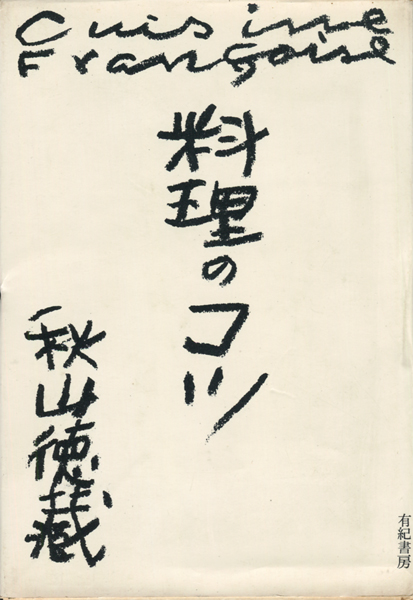 Cuisine
Française
料理のコツ
秋山徳蔵
有紀書房